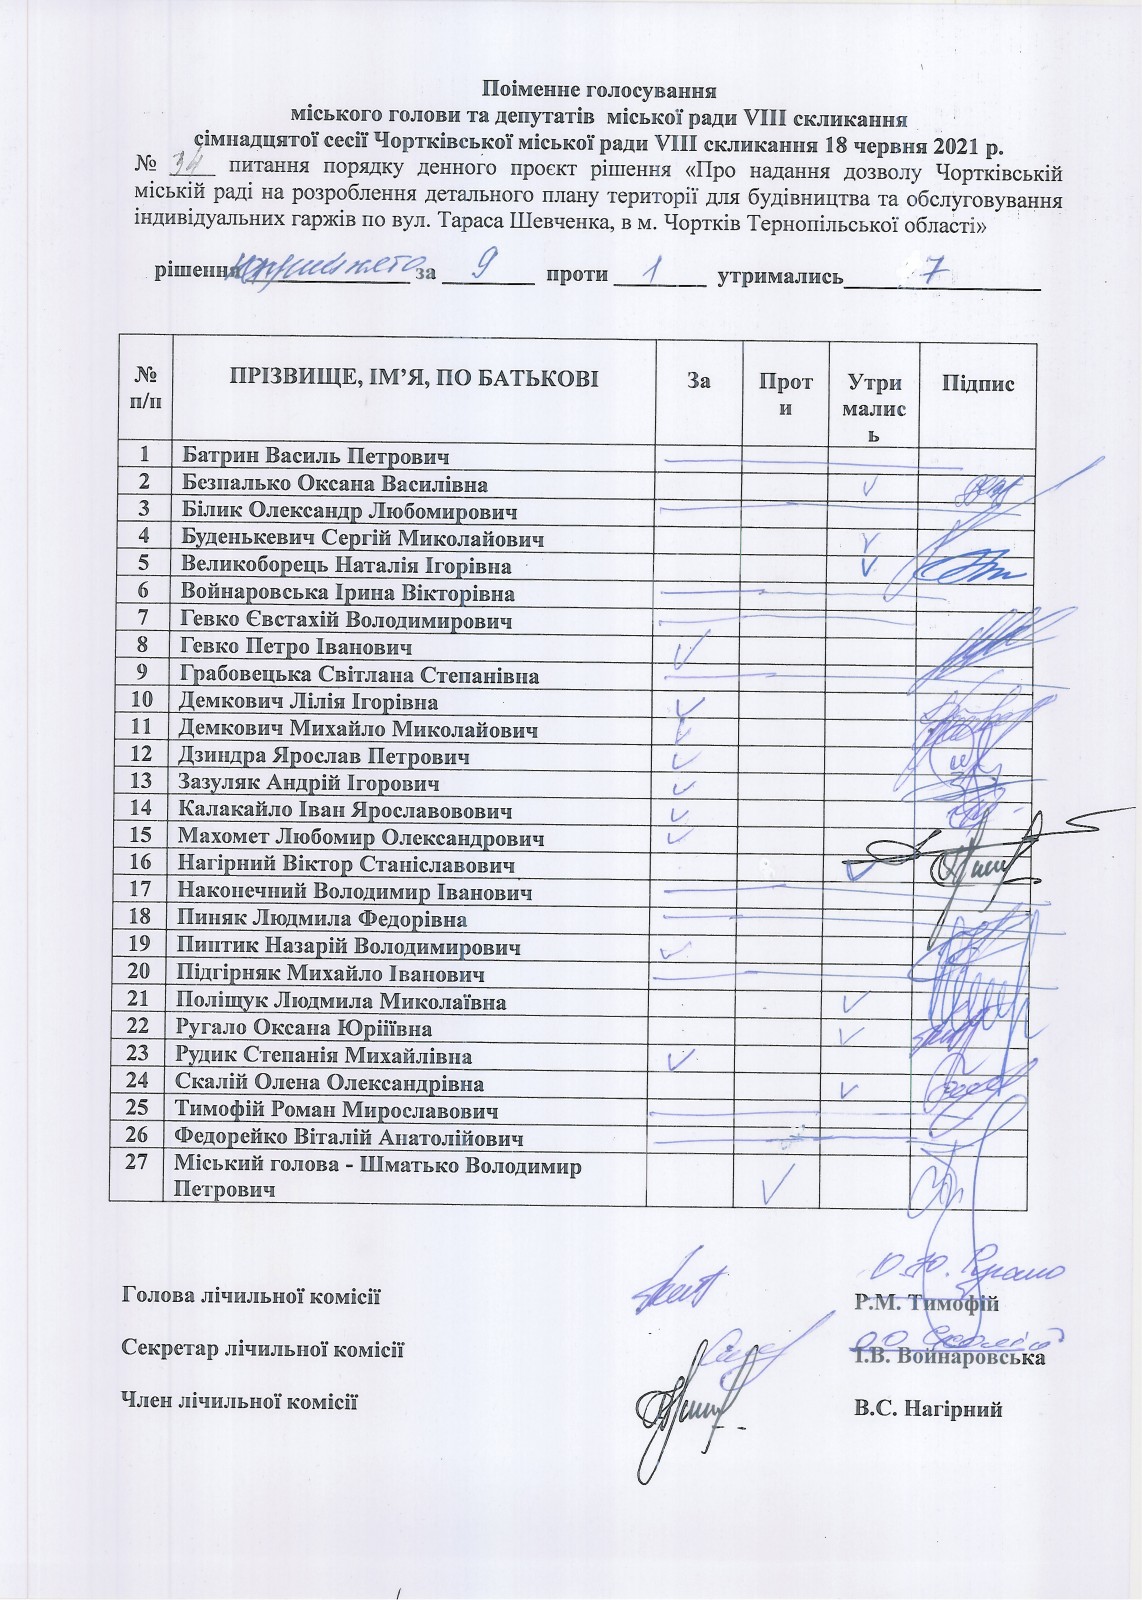 Поіменне голосування
міського голови та депутатів міської ради VIII скликання
сімнадцятої сесії Чортківської міської ради VIII скликання 18 червня 2021 р.
№ 34 питання порядку денного проєкт рішення «Про надання дозволу Чортківській
міській раді на розроблення детального плану території для будівництва та обслуговування
індивідуальних гаржів по вул. Тараса Шевченка, в м. Чортків Тернопільської області»
рішення за 9 проти 1 утримались 7
№ п/п ПРІЗВИЩЕ, ІМ’Я, ПО БАТЬКОВІ За Проти Утрималис ь Підпис
1 Батрин Василь Петрович
2 Безпалько Оксана Василівна
3 Білик Олександр Любомирович
4 Буденькевич Сергій Миколайович
5 Великоборець Наталія Ігорівна
6 Войнаровська Ірина Вікторівна
7 Гевко Євстахій Володимирович
8 Гевко Петро Іванович
9 Грабовецька Світлана Степанівна
10 Демкович Лілія Ігорівна
11 Демкович Михайло Миколайович
12 Дзиндра Ярослав Петрович
13 Зазуляк Андрій Ігорович
14 Калакайло Іван Ярославовович
15 Махомет Любомир Олександрович
16 Нагірний Віктор Станіславович
17 Наконечний Володимир Іванович
18 Пиняк Людмила Федорівна
19 Пиптик Назарій Володимирович
20 Підгірняк Михайло Іванович
21 Поліщук Людмила Миколаївна
22 Ругало Оксана Юріїївна
23 Рудик Степанія Михайлівна
24 Скалій Олена Олександрівна
25 Тимофій Роман Мирославович
26 Федорейко Віталій Анатолійович
27 Міський голова - Шматько Володимир
Петрович
Голова лічильної комісії Р.М. Тимофій
Секретар лічильної комісії І.В. Войнаровська
Член лічильної комісії В.С. Нагірний